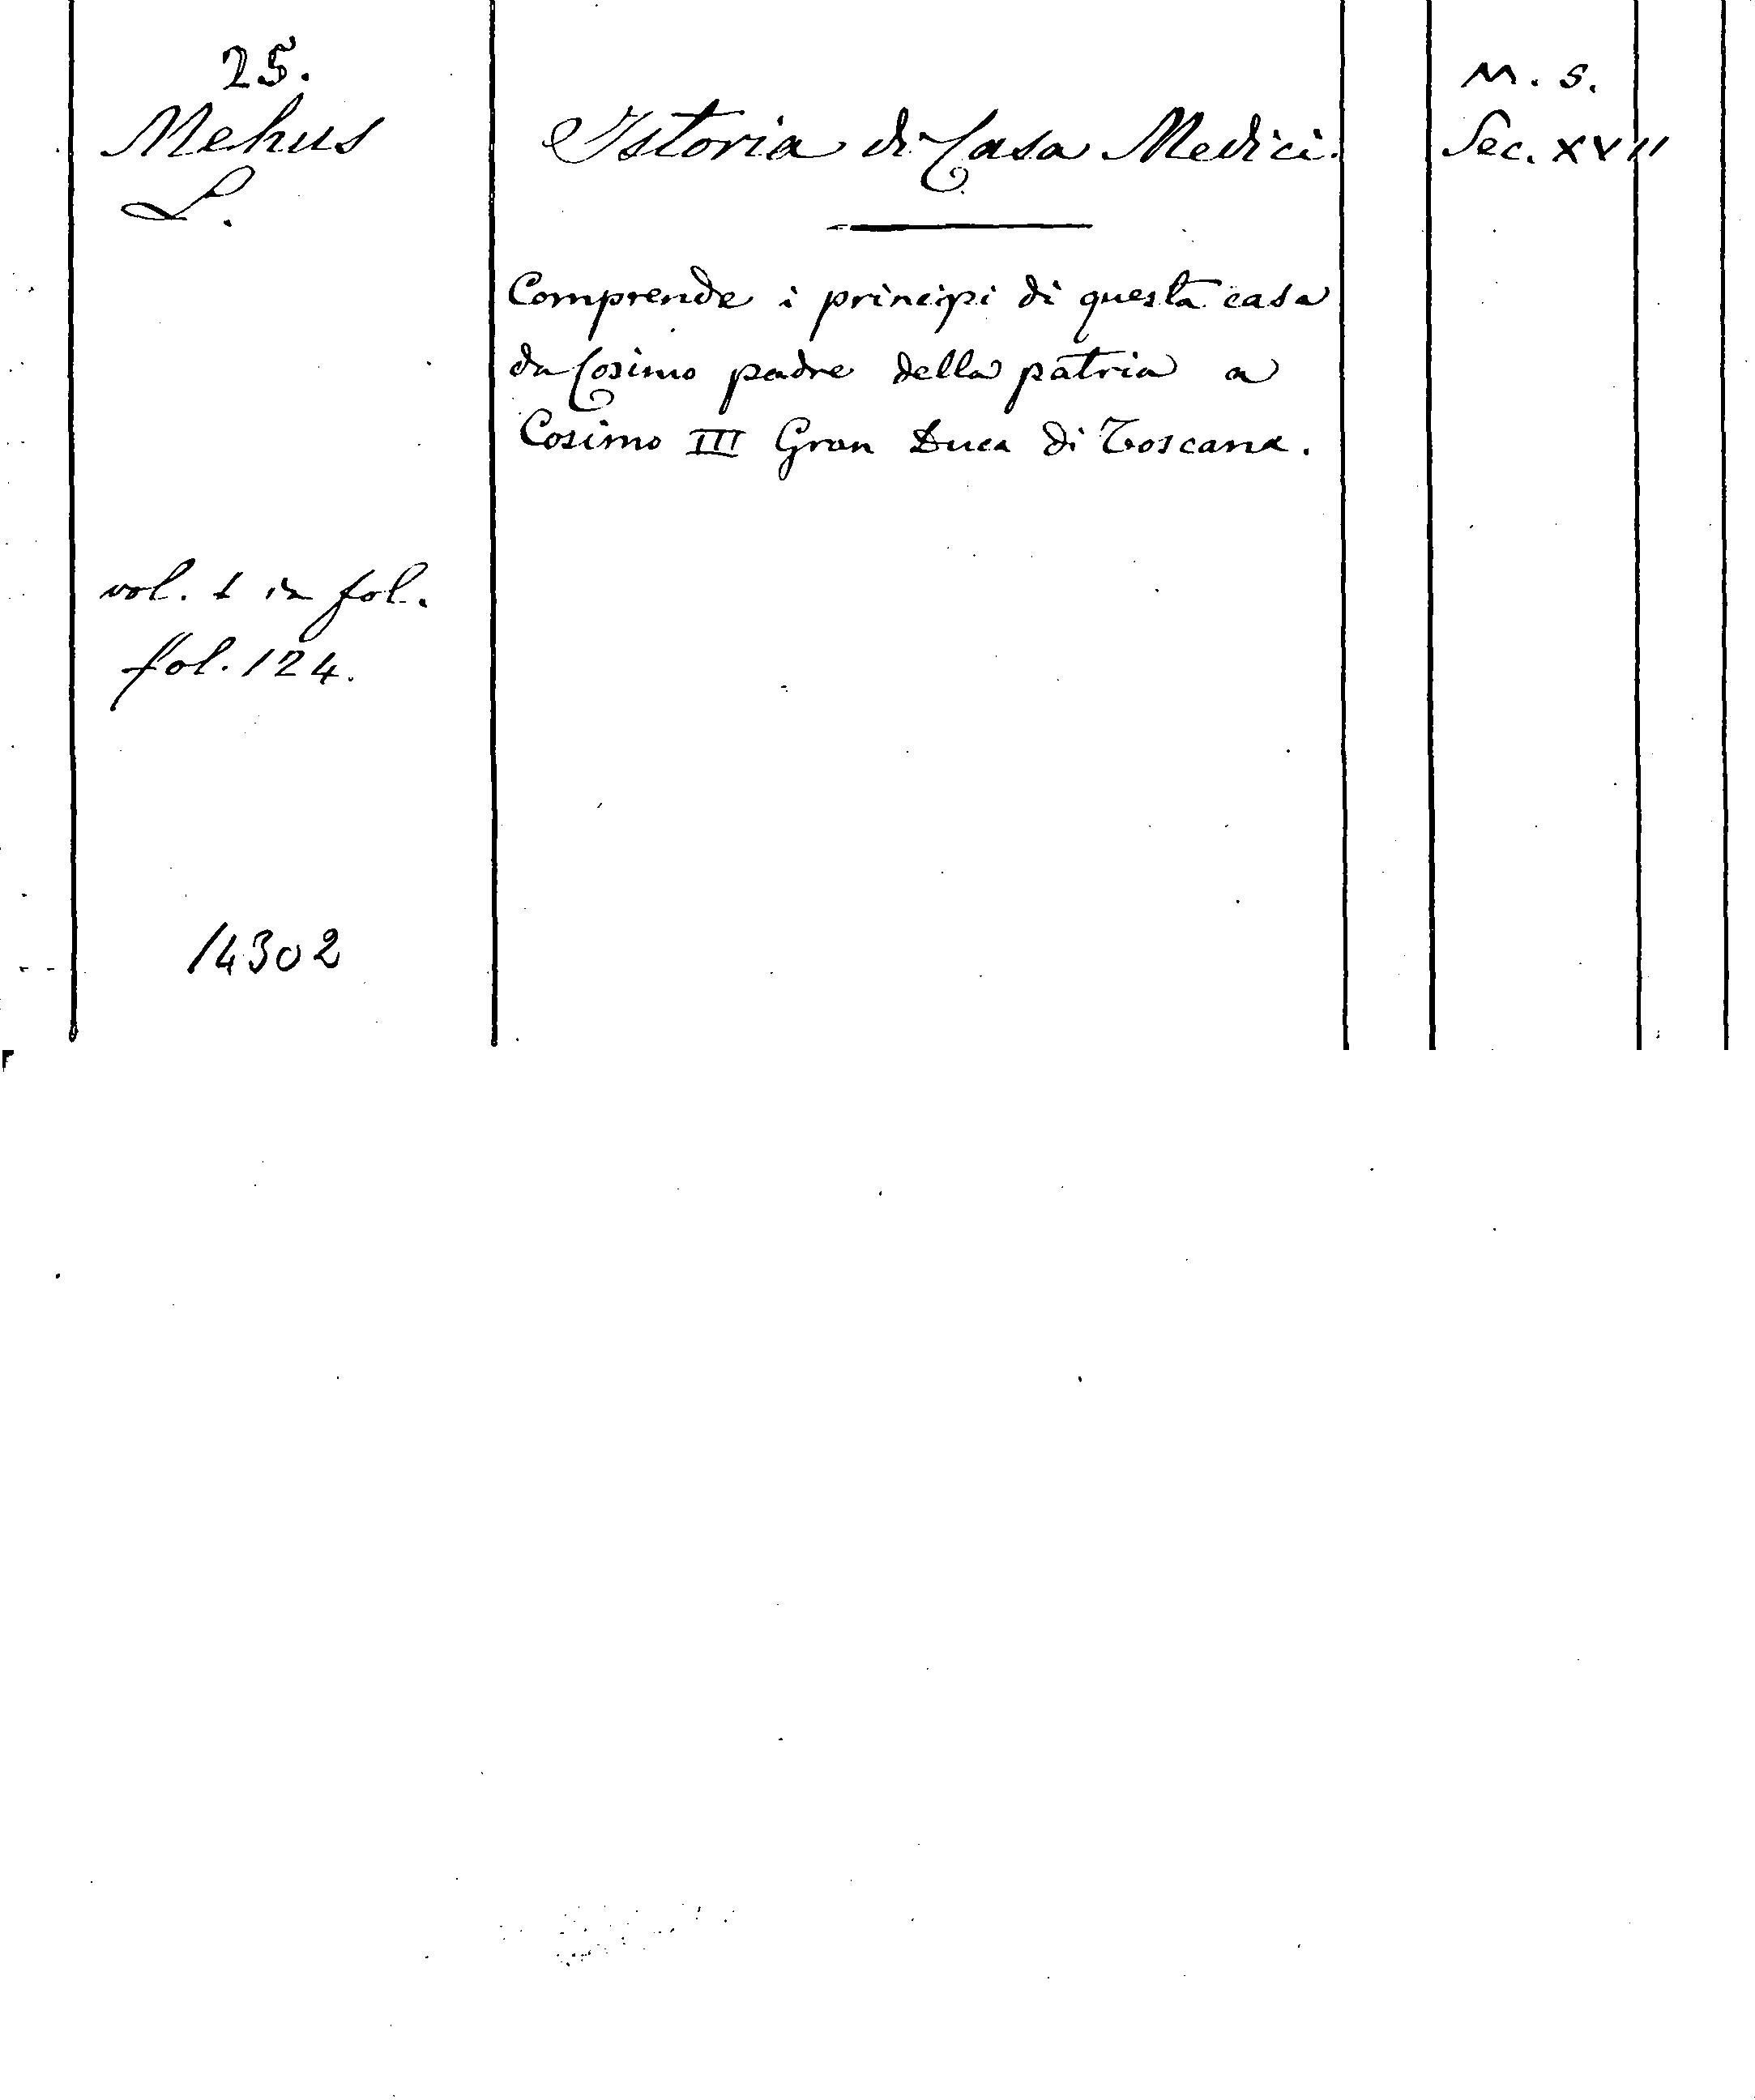 25.
Mehus
L.
Istoria di Casa Medici.
M. S.
Sec. XVII
Comprende i principi di questa casa
da Cosimo padre della patria a
Cosimo III Gran Duca di Toscana.
vol. 1 in fol.
fol. 124.
14302